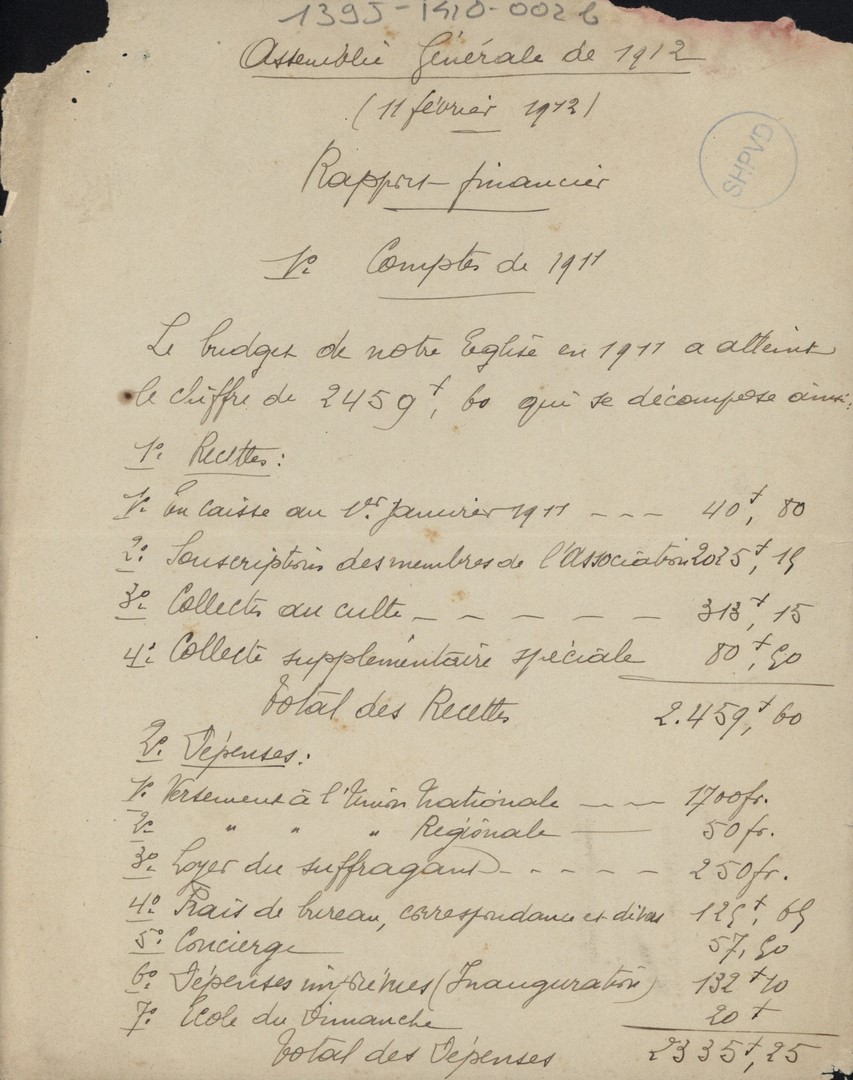 1395-1410-002b
Assemblée Générale de 1912
(11 février 1912)
SHPVD
Rapport financier
1º Comptes de 1911
Le budget de notre Eglise en 1911 a atteint
le chiffre de 2459f, 60 qui se décompose ainsi:
1º Recettes:
1º En caisse au 1er Janvier 1911 --- 40f, 80
2º Souscriptions des membres de l'Association 2025f, 15
3º Collectes au culte ------ 313f, 15
4º Collecte supplémentaire spéciale 80f, 50
Total des Recettes 2.459f, 60
2º Dépenses:
1º Versement à l'Union Nationale --- 1700fr.
2º " " " Régionale — 50fr.
3º Loyer du suffragant ----- 250fr.
4º Frais de bureau, correspondance et divers 125f, 65
5º Concierge 57, 50
6º Dépenses imprévues (Inauguration) 132f 10
7º Ecole du Dimanche 20f
Total des Dépenses 2335f, 25